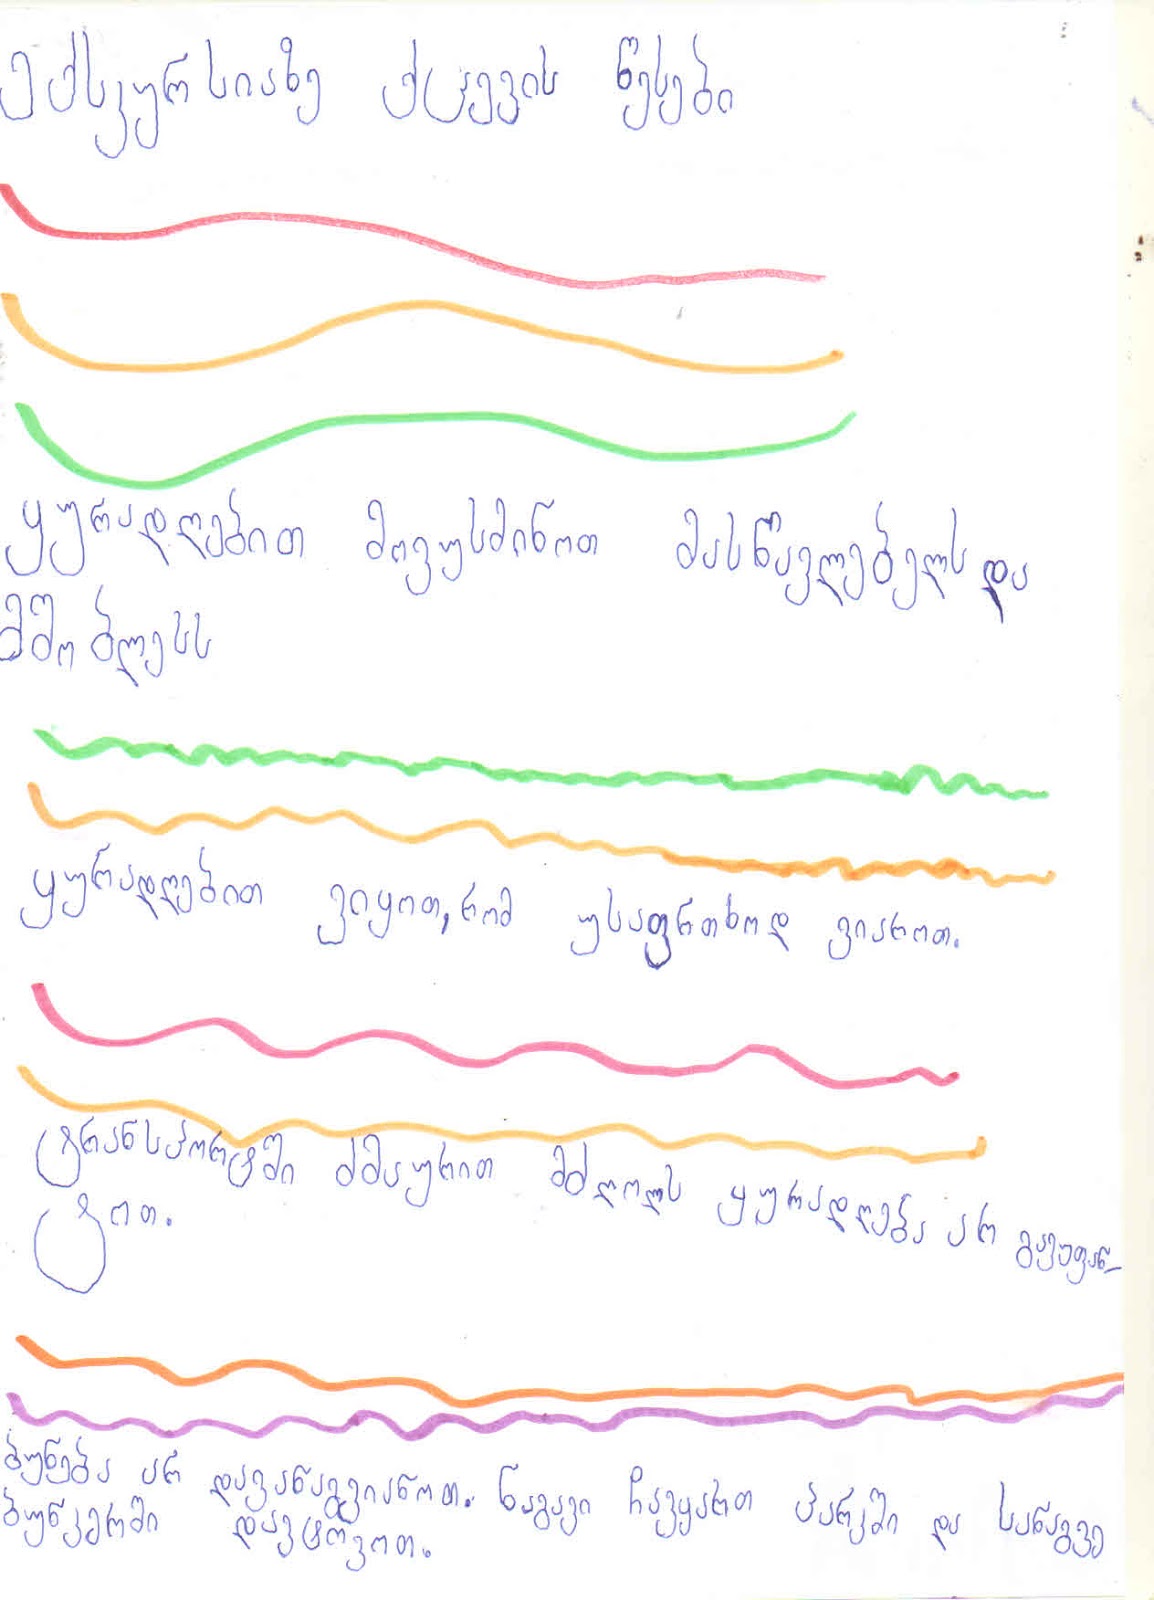 ექსკურსიაზე ქცევის წესები
ყურადღებით მოვუსმინოთ მასწავლებელს და
მშობლესს
ყურადღებით ვიყოთ, რომ უსაფრთხოდ ვიაროთ.
ტრანსპორტში ხმაურით მძღოლს ყურადღება არ გავუფან-
ტოთ.
ბუნება არ დავანაგვიანოთ. ნაგავი ჩავყაროთ პარკში და სანაგვე
ბუნკერში დავტოვოთ.